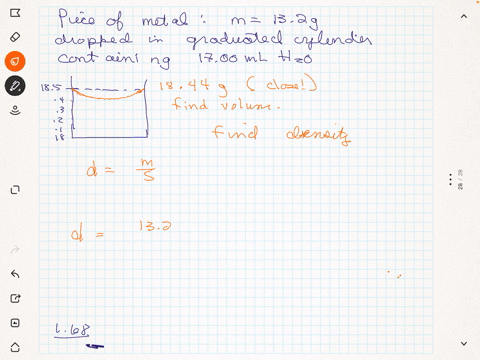 Piece of metal: m = 13.2g
dropped in graduated cylinder
containing 17.00 mL H=0
18.5
.4
.3
.2
.1
18
18.44 g (close!)
find volume.
find density
d = m/S
d = 13.2
1.68
28 / 28